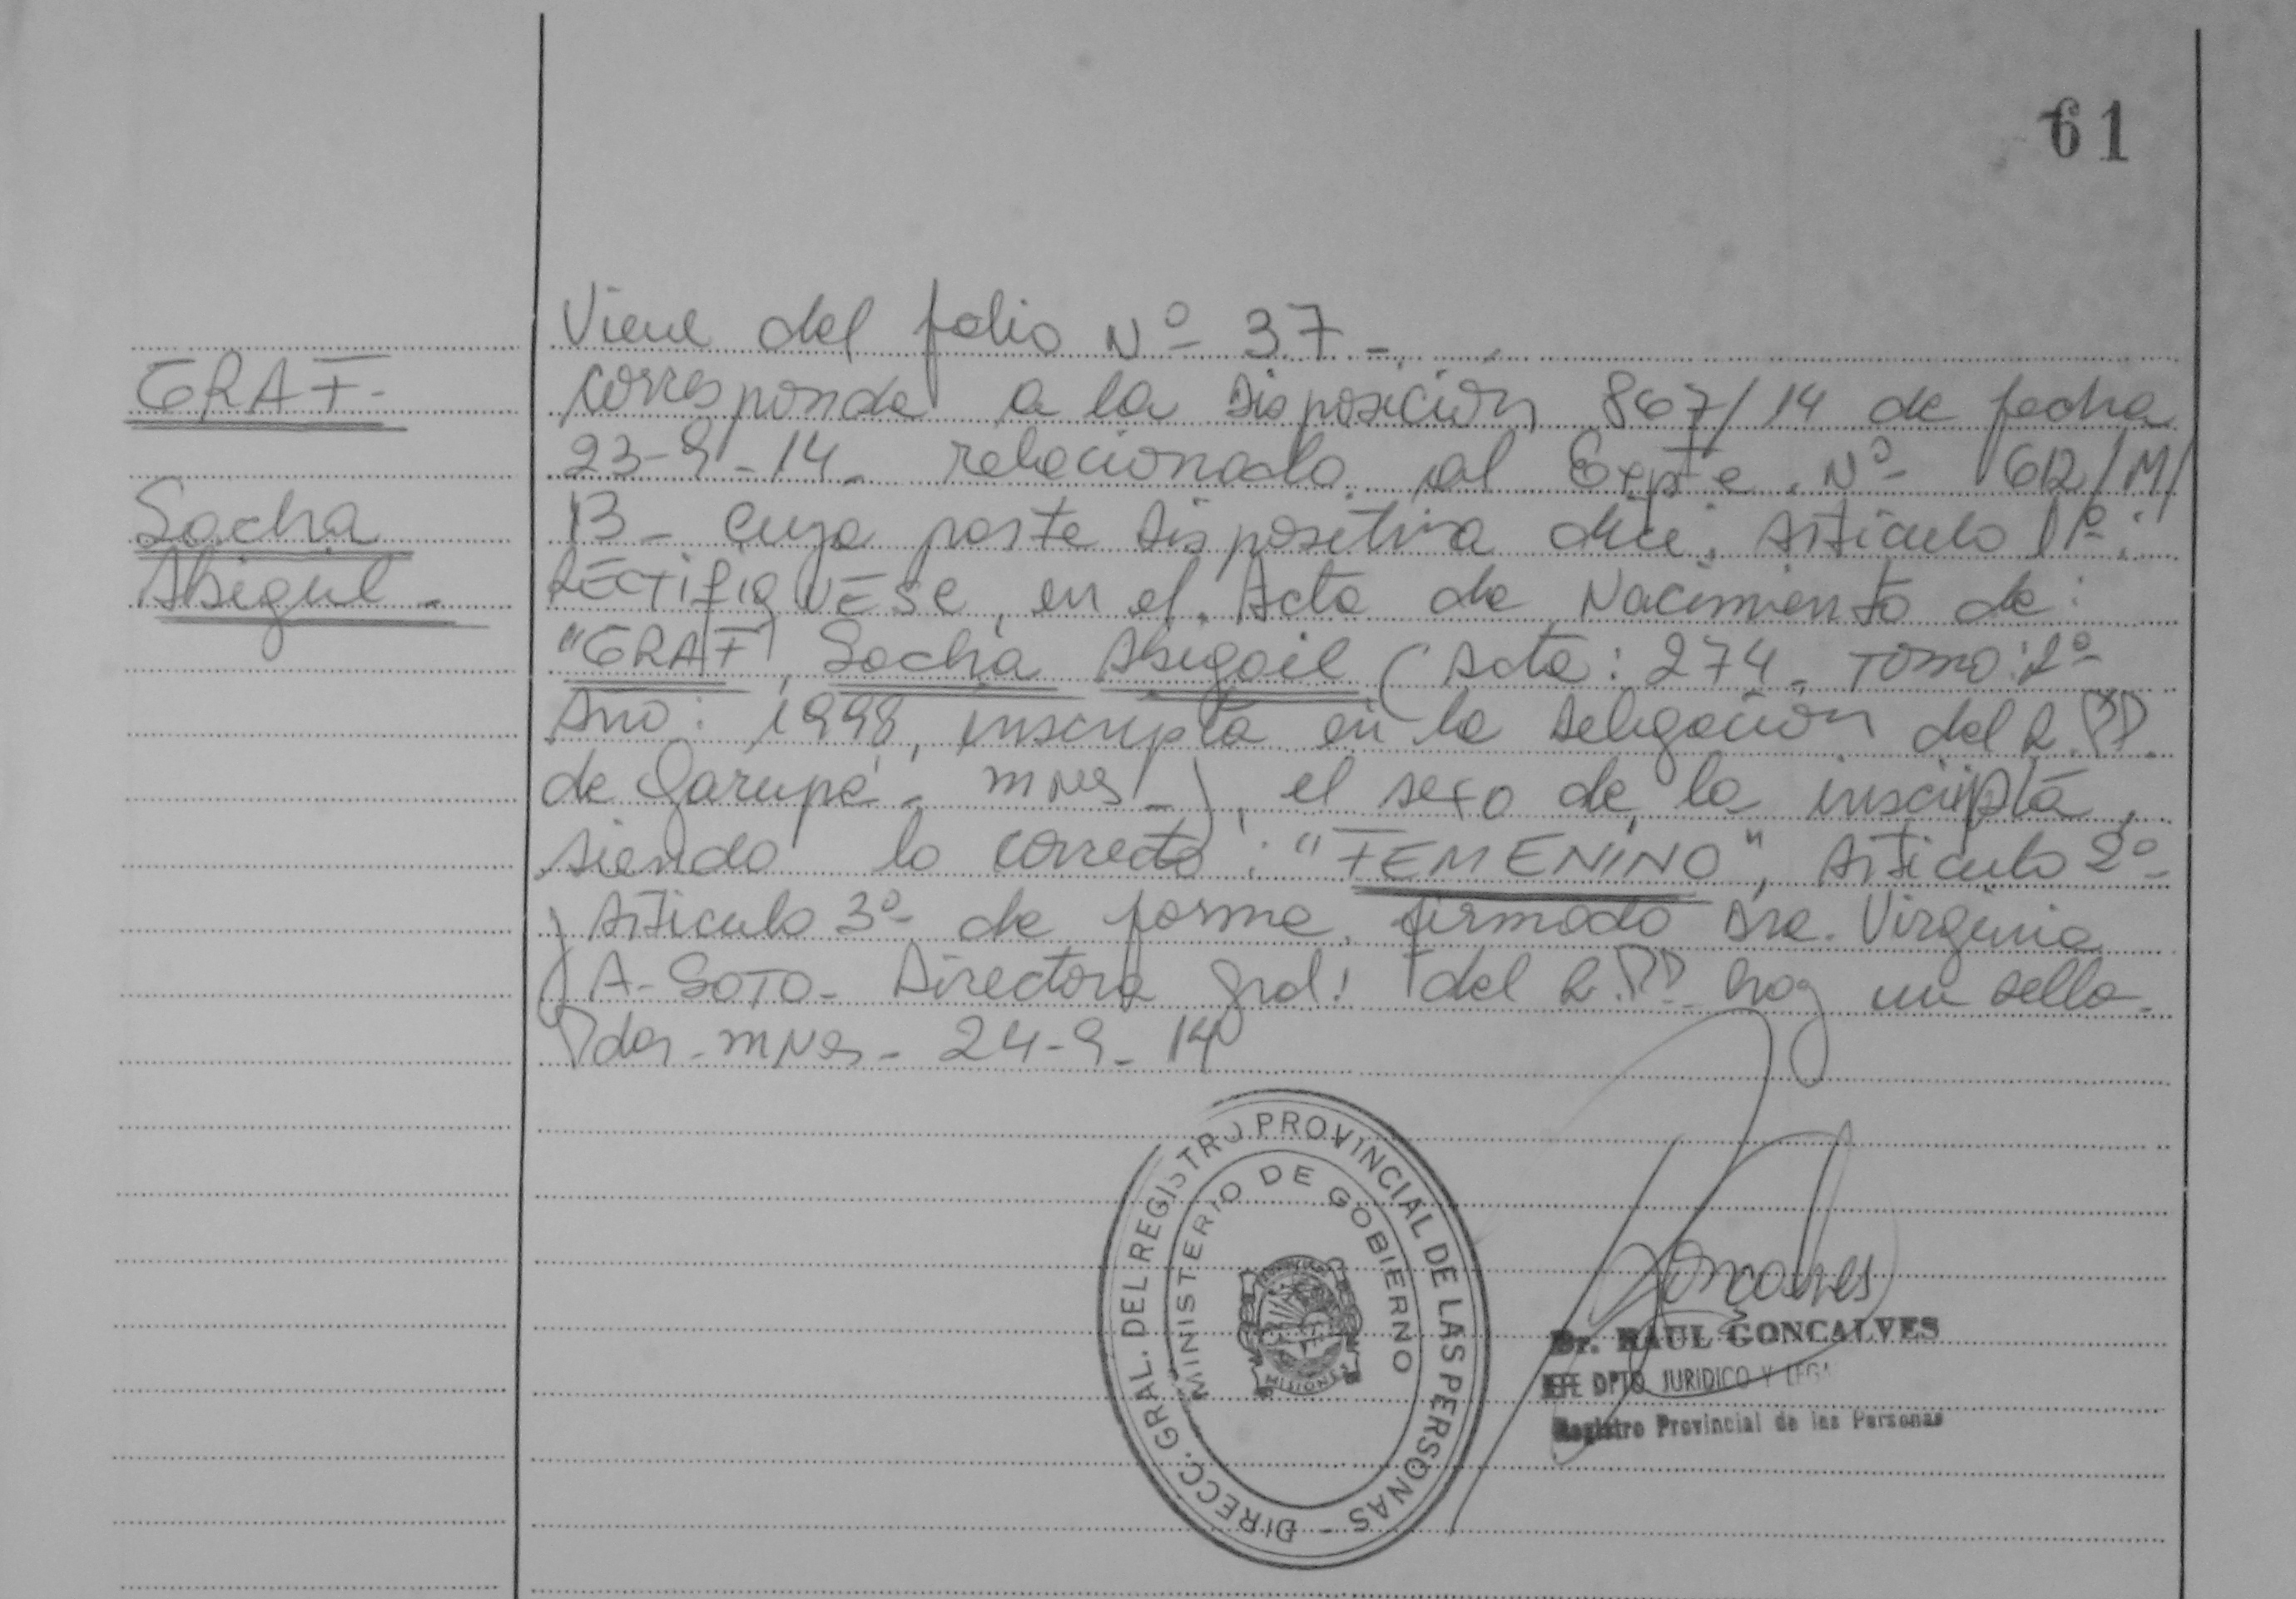 61
Viene del folio Nº 37 -
GRAF -
Corresponde a la Disposición 867/14 de fecha
23-9-14 - relacionado al Expte. Nº 612/M/
Sacha
13 - cuya parte Dispositiva dice: Artículo 1º:
Abigail -
RECTIFIQUESE en el Acta de Nacimiento de:
"GRAF, Sacha Abigail (Acta: 274 - Tomo: 2º
Año: 1998, inscripta en la Delegación del R.PP.
de Garupá - mnes -), el sexo de la inscripta,
siendo lo correcto: "FEMENINO", Artículo 2º
Artículo 3º de forma. firmado Dra. Virginia
A. SOTO - Directora Gral. del R.PP. hay un sello -
Pdas - mnes - 24-9-14
DIRECC. GRAL. DEL REGISTRO PROVINCIAL DE LAS PERSONAS -
MINISTERIO DE GOBIERNO
MISIONES
Goncalves
Dr. RAUL GONCALVES
JEFE DPTO. JURIDICO Y LEGAL
Registro Provincial de las Personas